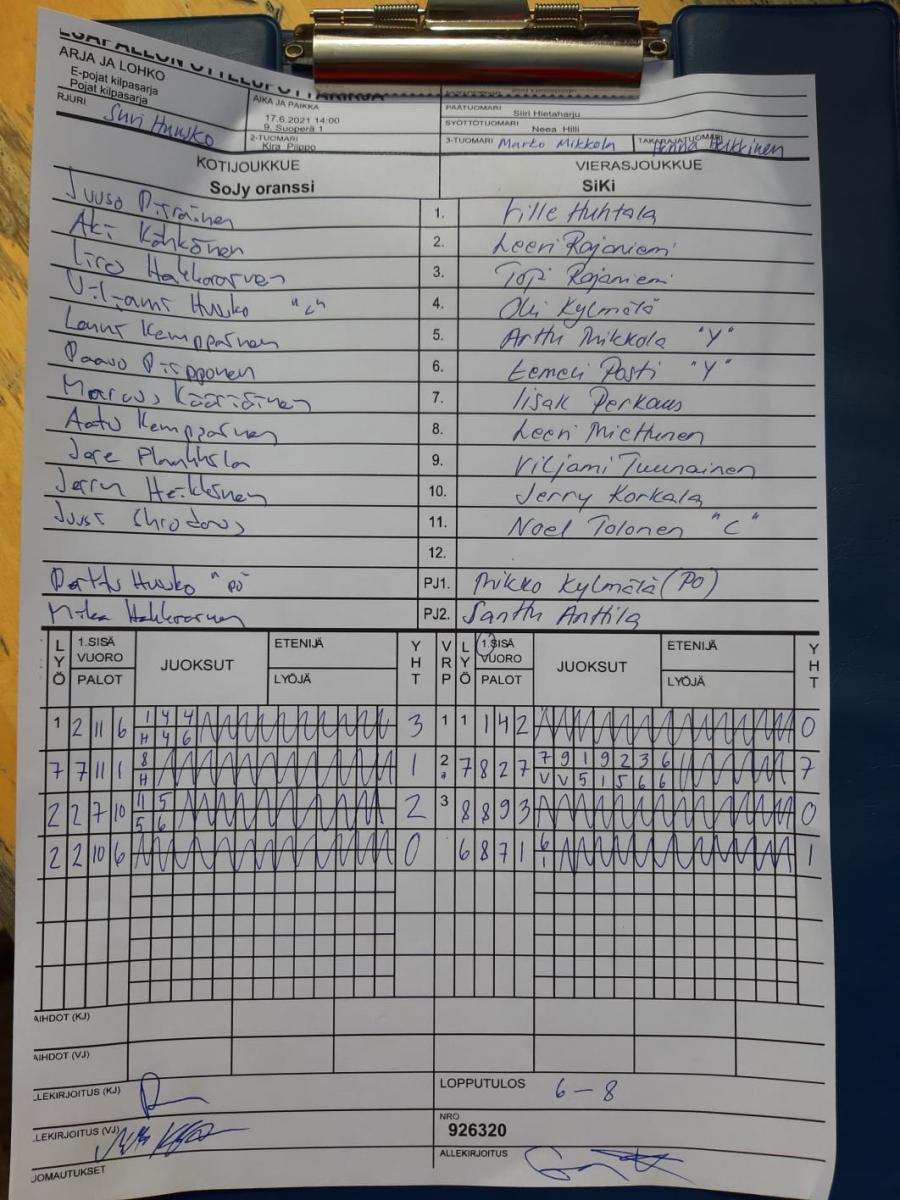 ARJA JA LOHKO
E-pojat kilpasarja
Pojat kilpasarja
AIKA JA PAIKKA
17.6.2021 14:00
9. Suoperä 1
PÄÄTUOMARI
Siiri Hietaharju
SYÖTTÖTUOMARI
Neea Hilli
RJURI
Siiri Huusko
2-TUOMARI
Kira Piippo
3-TUOMARI Marko Mikkola
TAKARAJATUOMARI
Henna Heikkinen
KOTIJOUKKUE
SoJy oranssi
VIERASJOUKKUE
SiKi
Juuso Piirainen 1. Ville Huhtala
Aki Kähkönen 2. Leevi Rajaniemi
Hakkarainen 3. Topi Rajaniemi
Viljami Huusko "C" 4. Oli Kylmälä
Lauri Kemppainen 5. Arttu Mikkola "Y"
Paavo Piipponen 6. Eemeli Posti "Y"
Marcus Kääriäinen 7. Iisak Perkaus
Aatu Kemppainen 8. Leevi Miettunen
9. Viljami Tuunainen
Heikkinen 10. Jerry Korkala
11. Noel Tolonen "C"
12.
Huusko "PÖ" PJ1. Mikko Kylmälä (PÖ)
Mika Hakkarainen PJ2. Santtu Anttila
LYÖ 1.SISÄ VUORO PALOT JUOKSUT ETENIJÄ LYÖJÄ YHT VRP LYÖ 1.SISÄ VUORO PALOT JUOKSUT ETENIJÄ LYÖJÄ YHT
1 2 11 6 1 4 4 3 1 1 1 4 2 0
H 4 6
7 7 11 1 8 1 2 * 7 8 2 7 7 9 1 9 2 3 6 7
H V V 5 1 5 6 6
2 2 7 10 11 5 2 3 8 8 9 3 0
5 6
2 2 10 6 0 6 8 7 1 6 1
1
AIHDOT (KJ)
AIHDOT (VJ)
LEKIRJOITUS (KJ)
LOPPUTULOS 6-8
LEKIRJOITUS (VJ)
NRO
926320
JOMAUTUKSET
ALLEKIRJOITUS